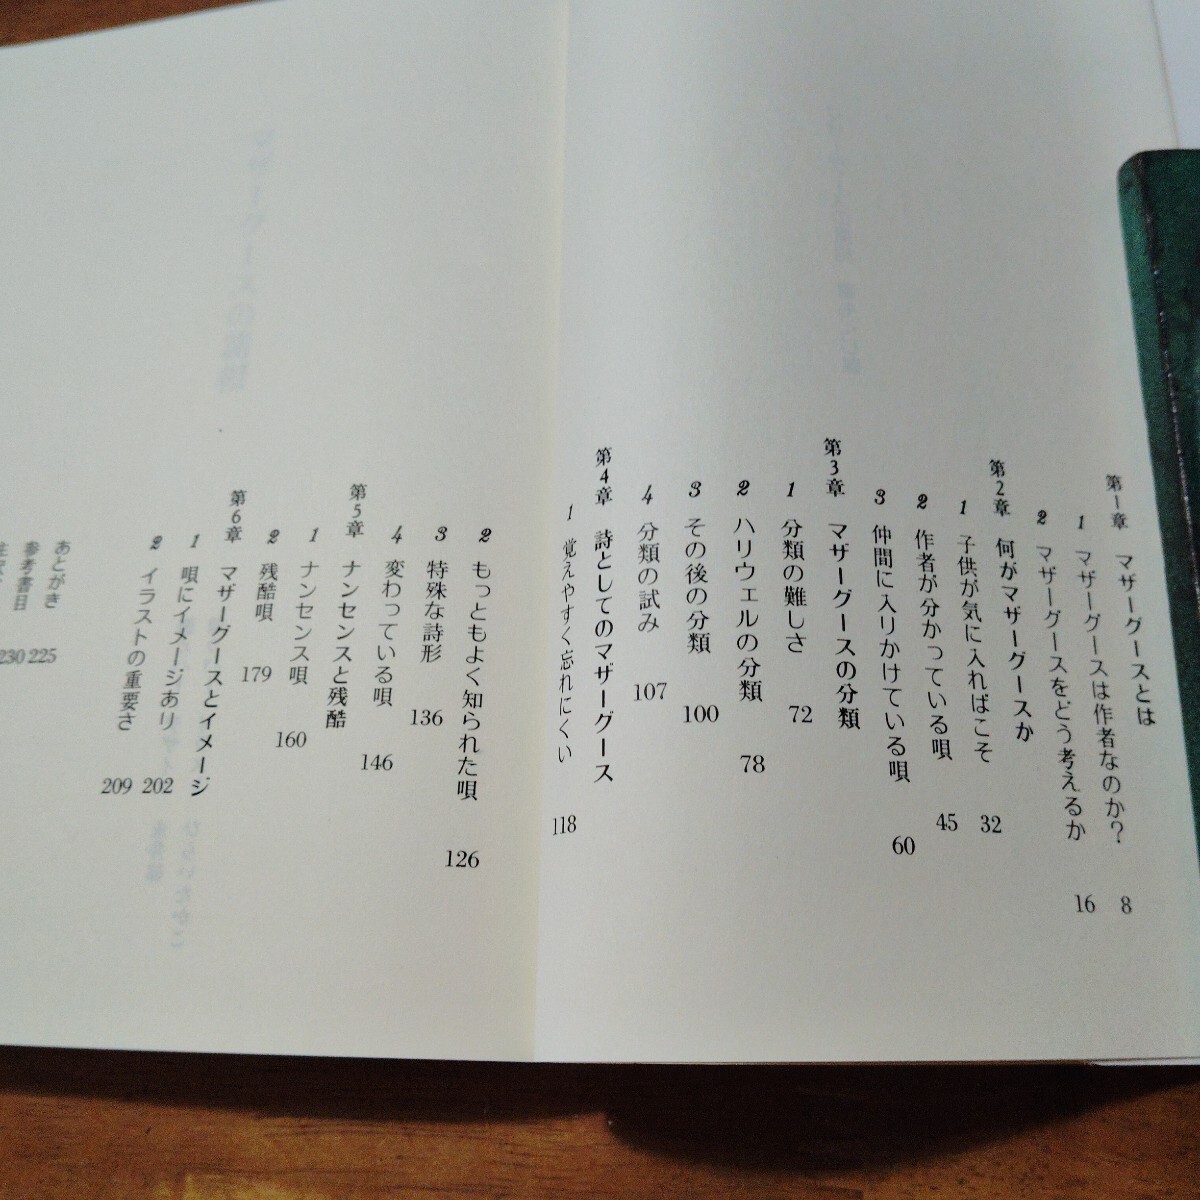 第1章 マザーグースとは
1 マザーグースは作者なのか? 8
2 マザーグースをどう考えるか 16
第2章 何がマザーグースか
1 子供が気に入ればこそ 32
2 作者が分かっている唄 45
3 仲間に入りかけている唄 60
第3章 マザーグースの分類
1 分類の難しさ 72
2 ハリウェルの分類 78
3 その後の分類 100
4 分類の試み 107
第4章 詩としてのマザーグース
1 覚えやすく忘れにくい 118
2 もっともよく知られた唄 126
3 特殊な詩形 136
4 変わっている唄 146
第5章 ナンセンスと残酷
1 ナンセンス唄 160
2 残酷唄 179
第6章 マザーグースとイメージ
1 唄にイメージあり 202
2 イラストの重要さ 209
あとがき 225
参考書目 230